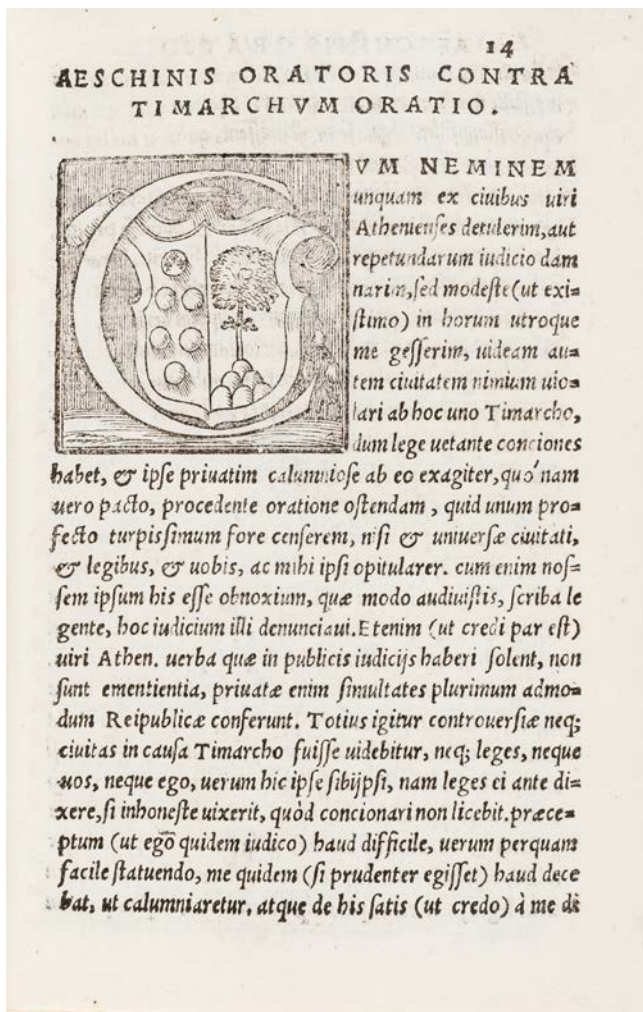 14
AESCHINIS ORATORIS CONTRA
TIMARCHVM ORATIO.
CVM NEMINEM
unquam ex ciuibus uiri
Athenienses detulerim, aut
repetundarum iudicio dam
narim, sed modeste (ut exi=
stimo) in horum utroque
me gesserim, uideam au=
tem ciuitatem nimium uio=
lari ab hoc uno Timarcho,
dum lege uetante conciones
habet, & ipse priuatim calumniose ab eo exagiter, quó nam
uero pacto, procedente oratione ostendam, quid unum pro=
fecto turpissimum fore censerem, nisi & uniuersæ ciuitati,
& legibus, & uobis, ac mihi ipsi opitularer. cum enim nos=
sem ipsum his esse obnoxium, quæ modo audiuistis, scriba le
gente, hoc iudicium illi denunciaui. Etenim (ut credi par est)
uiri Athen. uerba quæ in publicis iudicijs haberi solent, non
sunt ementientia, priuatæ enim simultates plurimum admo=
dum Reipublicæ conferunt. Totius igitur controuersiæ neq;
ciuitas in causa Timarcho fuisse uidebitur, neq; leges, neque
uos, neque ego, uerum hic ipse sibijpsi, nam leges ei ante di=
xere, si inhoneste uixerit, quòd concionari non licebit. præce=
ptum (ut egõ quidem iudico) haud difficile, uerum perquam
facile statuendo, me quidem (si prudenter egisset) haud dece
bat, ut calumniaretur, atque de his satis (ut credo) à me di